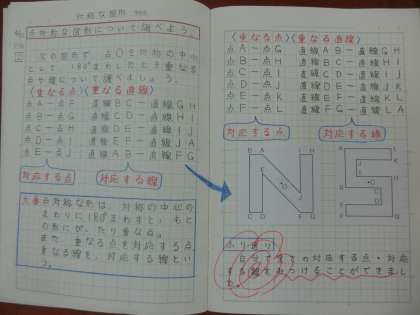 対称な図形
点対称な図形について調べよう。
この図形で、点Oを対称の中心
として180°まわしたとき重なる
点や線について調べましょう。
〈重なる点〉〈重なる直線〉
点A－点F 直線BC－直線GH
点B－点G 直線CD－直線HI
点C－点H 直線DE－直線IJ
点D－点I 直線EF－直線JA
点E－点J 直線AB－直線FG
対応する点 対応する線
点対称な図形は、対称の中心の
まわりに180°まわすと、もと
の形にぴったり重なる。
また、重なる点を対応する点、
重なる線を、対応する線とい
う。
〈重なる点〉〈重なる直線〉
点A－点G 直線AB－直線GH
点B－点H 直線BC－直線HI
点C－点I 直線CD－直線IJ
点D－点J 直線DE－直線JK
点E－点K 直線EF－直線KL
点F－点L 直線FG－直線LA
対応する点 対応する線
ふり返り
自分で全ての対応する点・対応
する線をみつけることができまし
た。